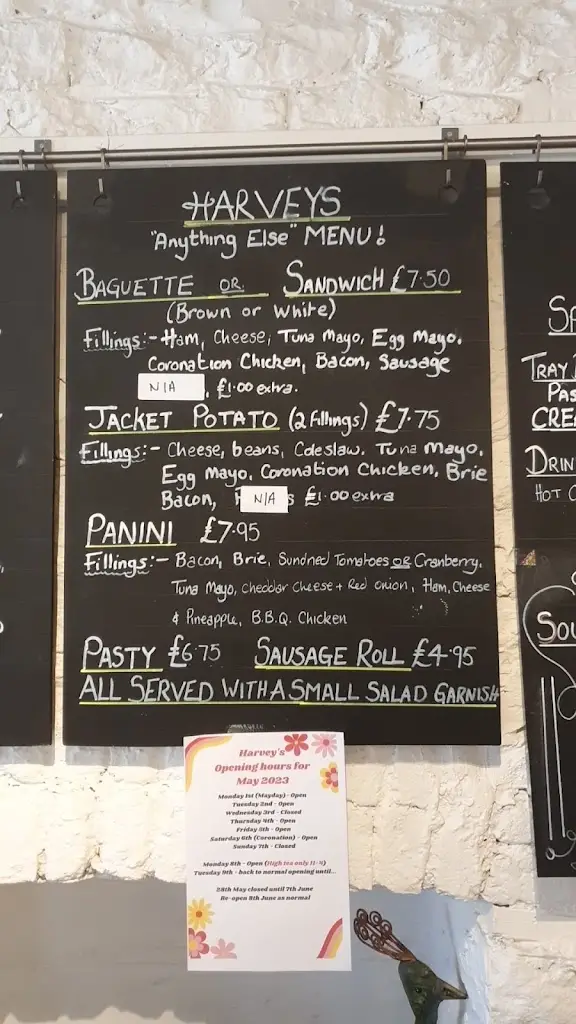 HARVEYS
"Anything Else" MENU!
BAGUETTE OR SANDWICH £7.50
(Brown or White)
Fillings:- Ham, Cheese, Tuna Mayo, Egg Mayo,
Coronation Chicken, Bacon, Sausage
N/A, £1.00 extra.
JACKET POTATO (2 fillings) £7.75
Fillings:- Cheese, beans, Coleslaw, Tuna Mayo,
Egg Mayo, Coronation Chicken, Brie
Bacon, N/A £1.00 extra
PANINI £7.95
Fillings:- Bacon, Brie, Sundried Tomatoes OR Cranberry,
Tuna Mayo, cheddar cheese + Red onion, Ham, Cheese
& Pineapple, B.B.Q. Chicken
PASTY £6.75 SAUSAGE ROLL £4.95
ALL SERVED WITH A SMALL SALAD GARNISH
Harvey's
Opening hours for
May 2023
Monday 1st (Mayday) - Open
Tuesday 2nd - Open
Wednesday 3rd - Closed
Thursday 4th - Open
Friday 5th - Open
Saturday 6th (Coronation) - Open
Sunday 7th - Closed
Monday 8th - Open (High tea only 11-4)
Tuesday 9th - back to normal opening until...
28th May closed until 7th June
Re-open 8th June as normal
TRAY
PAS
CRE
DRIN
HOT
SOU